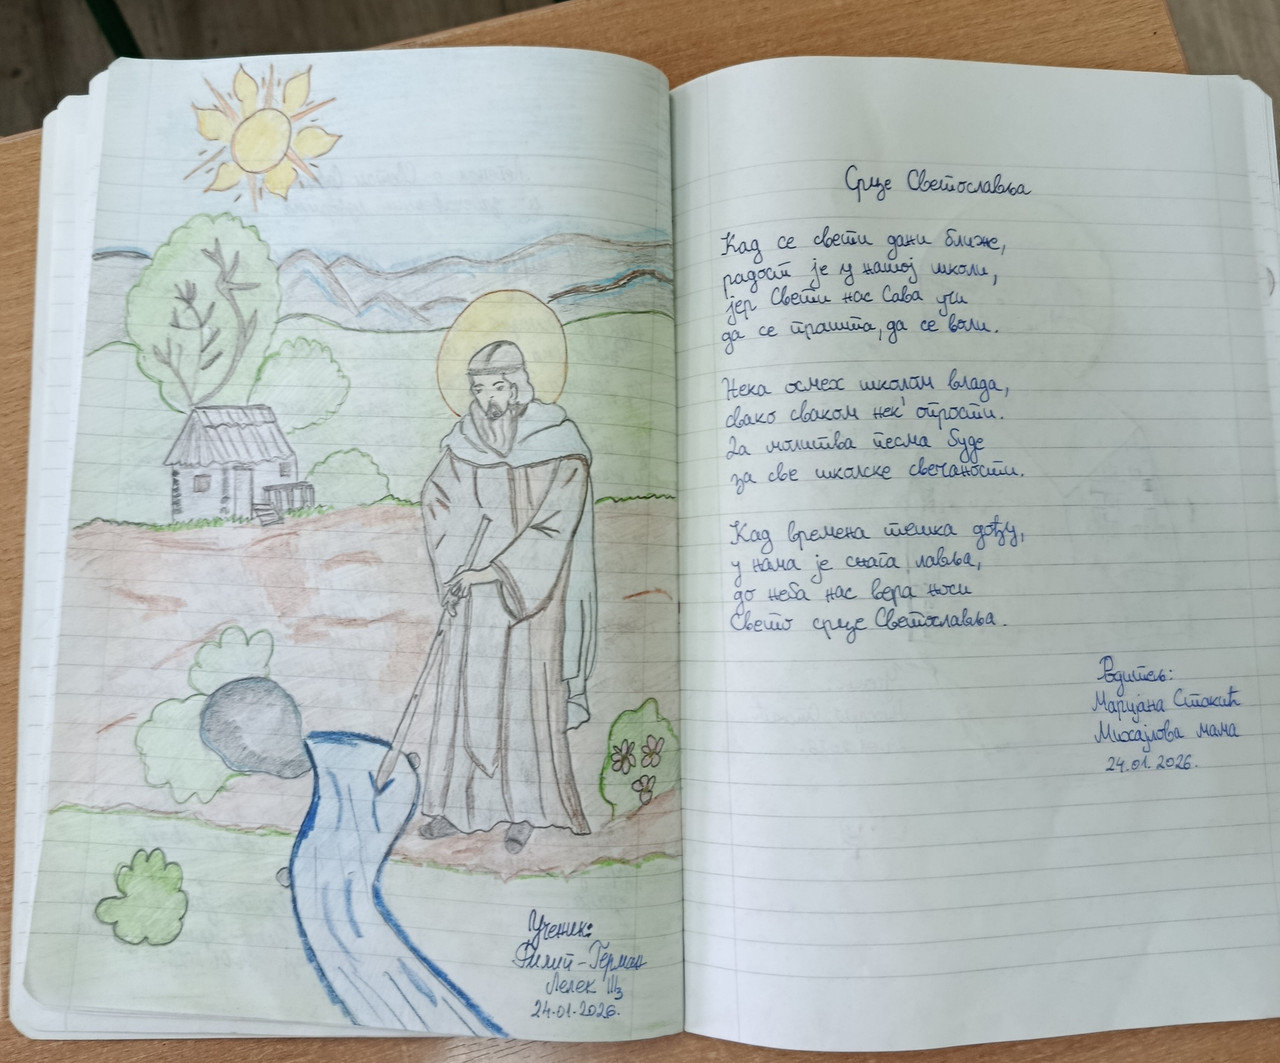 Ученик:
Филип-Герман
Лелек III₃
24.01.2026.
Срце Светославља
Кад се свети дани ближе,
радост је у нашој школи,
јер Свети нас Сава учи
да се прашта, да се воли.
Нека осмех школом влада,
свако сваком нек' опрости.
За молитва песма буде
за све школске свечаности.
Кад времена тешка дођу,
у нама је снага лавља,
до неба нас вера носи
Свето срце Светославља.
Родитељ:
Маријана Стакић
Михајлова мама
24.01.2026.